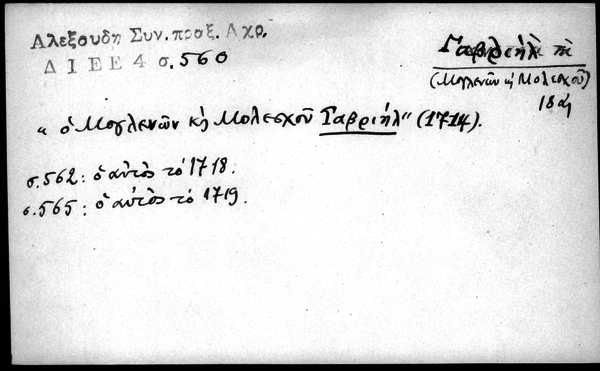 Αλεξουδη Συν. πραξ. Αχρ.
Δ Ι Ε Ε 4 σ. 560
Γαβριήλ
(Μογλενῶν κ̀ Μολεσχοῦ)
18
" ὁ Μογλενῶν κ̀ Μολεσχοῦ Γαβριήλ" (1714).
σ. 562: ὁ αὐτὸς τὸ 1718.
σ. 565: ὁ αὐτὸς τὸ 1719.